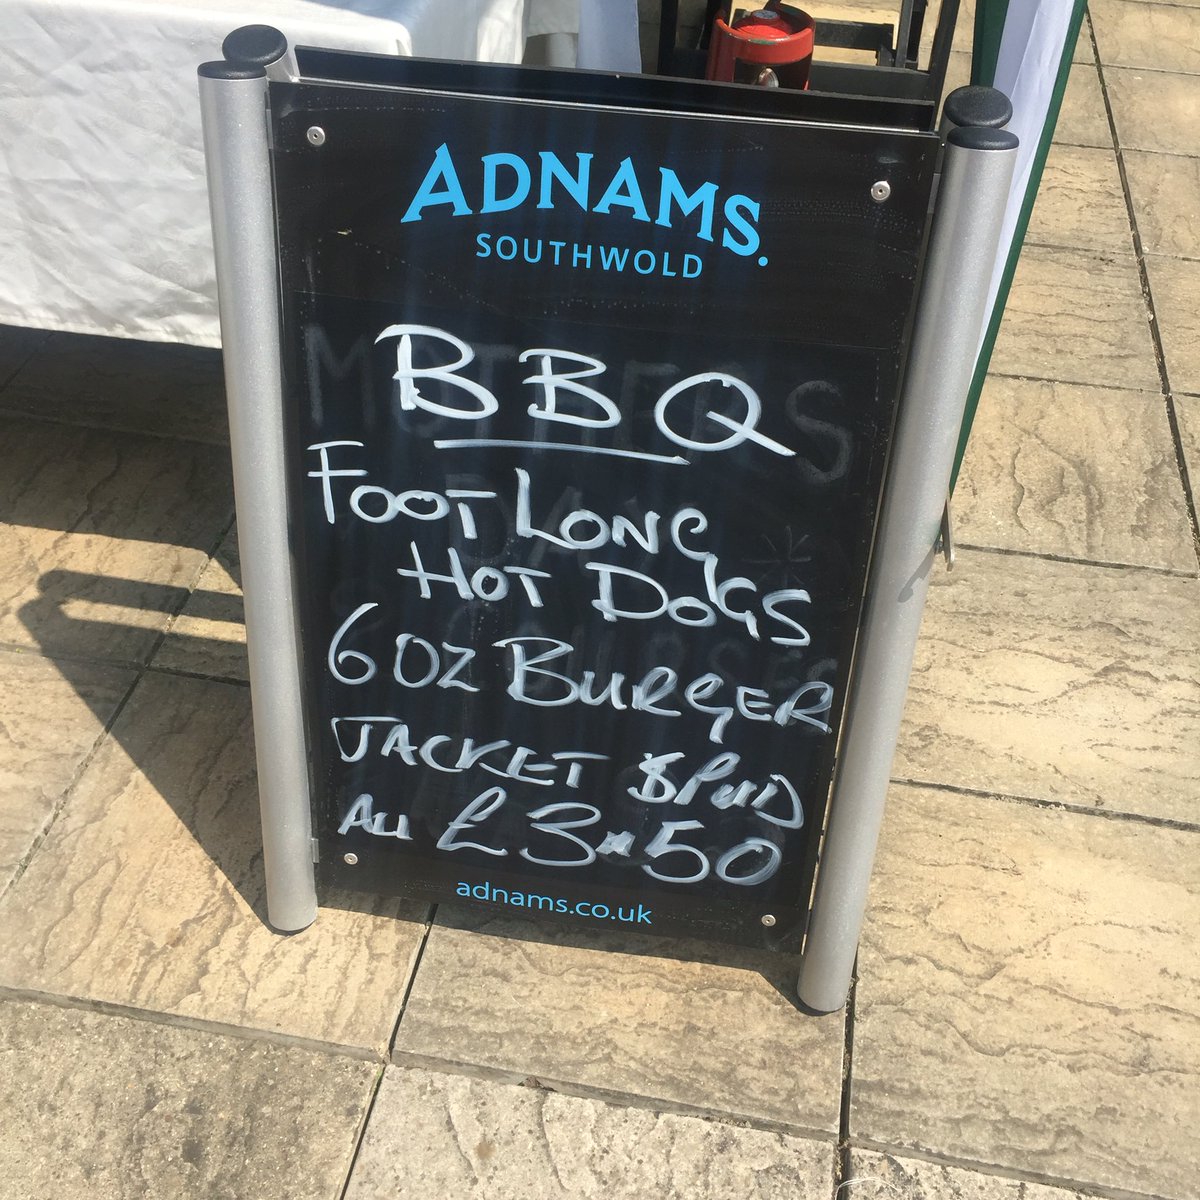 ADNAMS.
SOUTHWOLD
BBQ
FOOT LONG
HOT DOGS
6 OZ BURGER
JACKET SPUD
ALL £3.50
adnams.co.uk